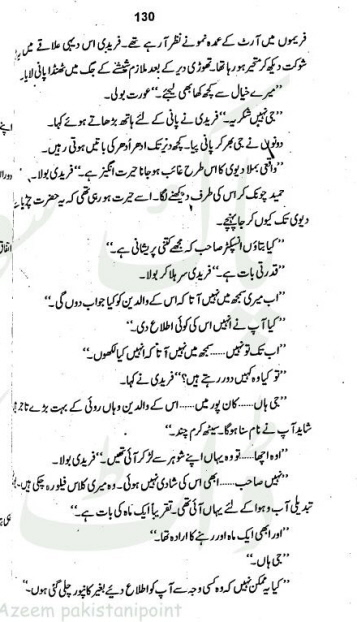 130
فریموں میں آرٹ کے عمدہ نمونے نظر آ رہے تھے۔ فریدی اس دیہی علاقے میں یہ
شوکت دیکھ کر متحیر ہو رہا تھا۔ تھوڑی دیر کے بعد ملازم شیشے کے جگ میں ٹھنڈا پانی لایا۔
”میرے خیال سے کچھ کھا بھی لیجئے۔“ عورت بولی۔
”جی نہیں شکریہ۔“ فریدی نے پانی کے لئے ہاتھ بڑھاتے ہوئے کہا۔
دونوں نے جی بھر کر پانی پیا۔ کچھ دیر تک ادھر اُدھر کی باتیں ہوتی رہیں۔
”واقعی بملا دیوی کا اس طرح غائب ہو جانا حیرت انگیز ہے۔“ فریدی بولا۔
حمید چونک کر اس کی طرف دیکھنے لگا۔ اسے حیرت ہو رہی تھی کہ یہ حضرت
دیوی تک کیوں کر جا پہنچے۔
”کیا بتاؤں انسپکٹر صاحب کہ مجھے کتنی پریشانی ہے۔“
”قدرتی بات ہے۔“ فریدی سر ہلا کر بولا۔
”اب میری سمجھ میں نہیں آتا کہ اس کے والدین کو کیا جواب دوں گی۔“
”کیا آپ نے انہیں اس کی کوئی اطلاع دی۔“
”اب تک تو نہیں...... سمجھ میں نہیں آتا کہ انہیں کیا لکھوں۔“
”تو کیا وہ کہیں دور رہتے ہیں؟“ فریدی نے کہا۔
”جی ہاں...... کان پور میں...... اس کے والدین وہاں روئی کے بہت بڑے تاجر
شاید آپ نے نام سنا ہو گا۔ سیٹھ کرم چند۔“
”اوہ اچھا...... تو وہ یہاں اپنے شوہر سے لڑ کر آئی تھیں۔“ فریدی بولا۔
”نہیں صاحب...... ابھی اس کی شادی نہیں ہوئی۔ وہ میری کلاس فیلو رہ چکی ہیں۔
تبدیلی آب و ہوا کے لئے یہاں آئی تھی۔ تقریباً ایک ماہ کی بات ہے۔“
”اور ابھی ایک ماہ اور رہنے کا ارادہ تھا۔“
”جی ہاں۔“
”کیا یہ ممکن نہیں کہ وہ کسی وجہ سے آپ کو اطلاع دیئے بغیر کانپور چلی گئی ہوں۔“
Azeem pakistanipoint